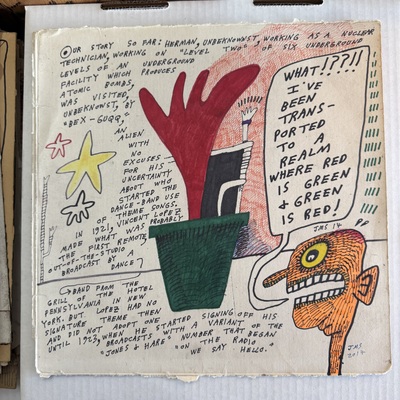 OUR STORY SO FAR: HERMAN, UNBEKNOWNST, WORKING AS A NUCLEAR
TECHNICIAN, WORKING ON "LEVEL TWO" OF SIX UNDERGROUND
LEVELS OF AN UNDERGROUND
FACILITY WHICH PRODUCES
ATOMIC BOMBS,
WAS VISITED,
UNBEKNOWNST, BY
"BEX-GUQQ,"
AN
ALIEN
WITH
NO
EXCUSES
FOR HIS
UNCERTAINTY
ABOUT WHO
STARTED THE
DANCE-BAND USE
OF THEME SONGS.
IN 1921, VINCENT LOPEZ
MADE WHAT WAS PROBABLY
THE FIRST REMOTE,
OUT-OF-THE-STUDIO
BROADCAST BY A
DANCE
BAND FROM THE
GRILL OF THE HOTEL
PENNSYLVANIA IN NEW
YORK. BUT LOPEZ HAD NO
SIGNATURE THEME THEN
AND DID NOT ADOPT ONE
UNTIL 1923, WHEN HE STARTED SIGNING OFF HIS
BROADCASTS WITH A VARIANT OF THE
"JONES & HARE" NUMBER THAT BEGAN
"ON THE RADIO
WE SAY HELLO."
WHAT!??!!
I'VE
BEEN
TRANS-
PORTED
TO A
REALM
WHERE RED
IS GREEN
& GREEN
IS RED!
JMS 14
JMS
2014